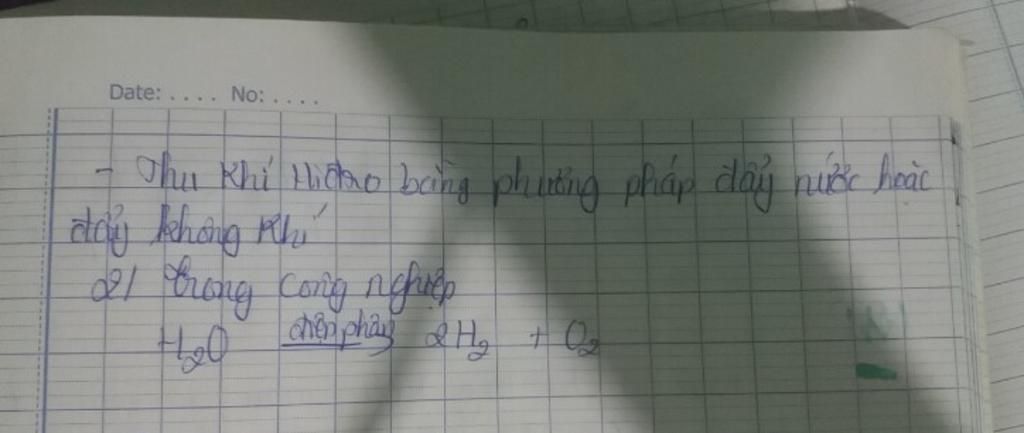 Date: .... No: ....
- Thu khí Hiđro bằng phương pháp đẩy nước hoặc
đẩy không khí
2/ trong công nghiệp
H₂O điện phân 2H₂ + O₂